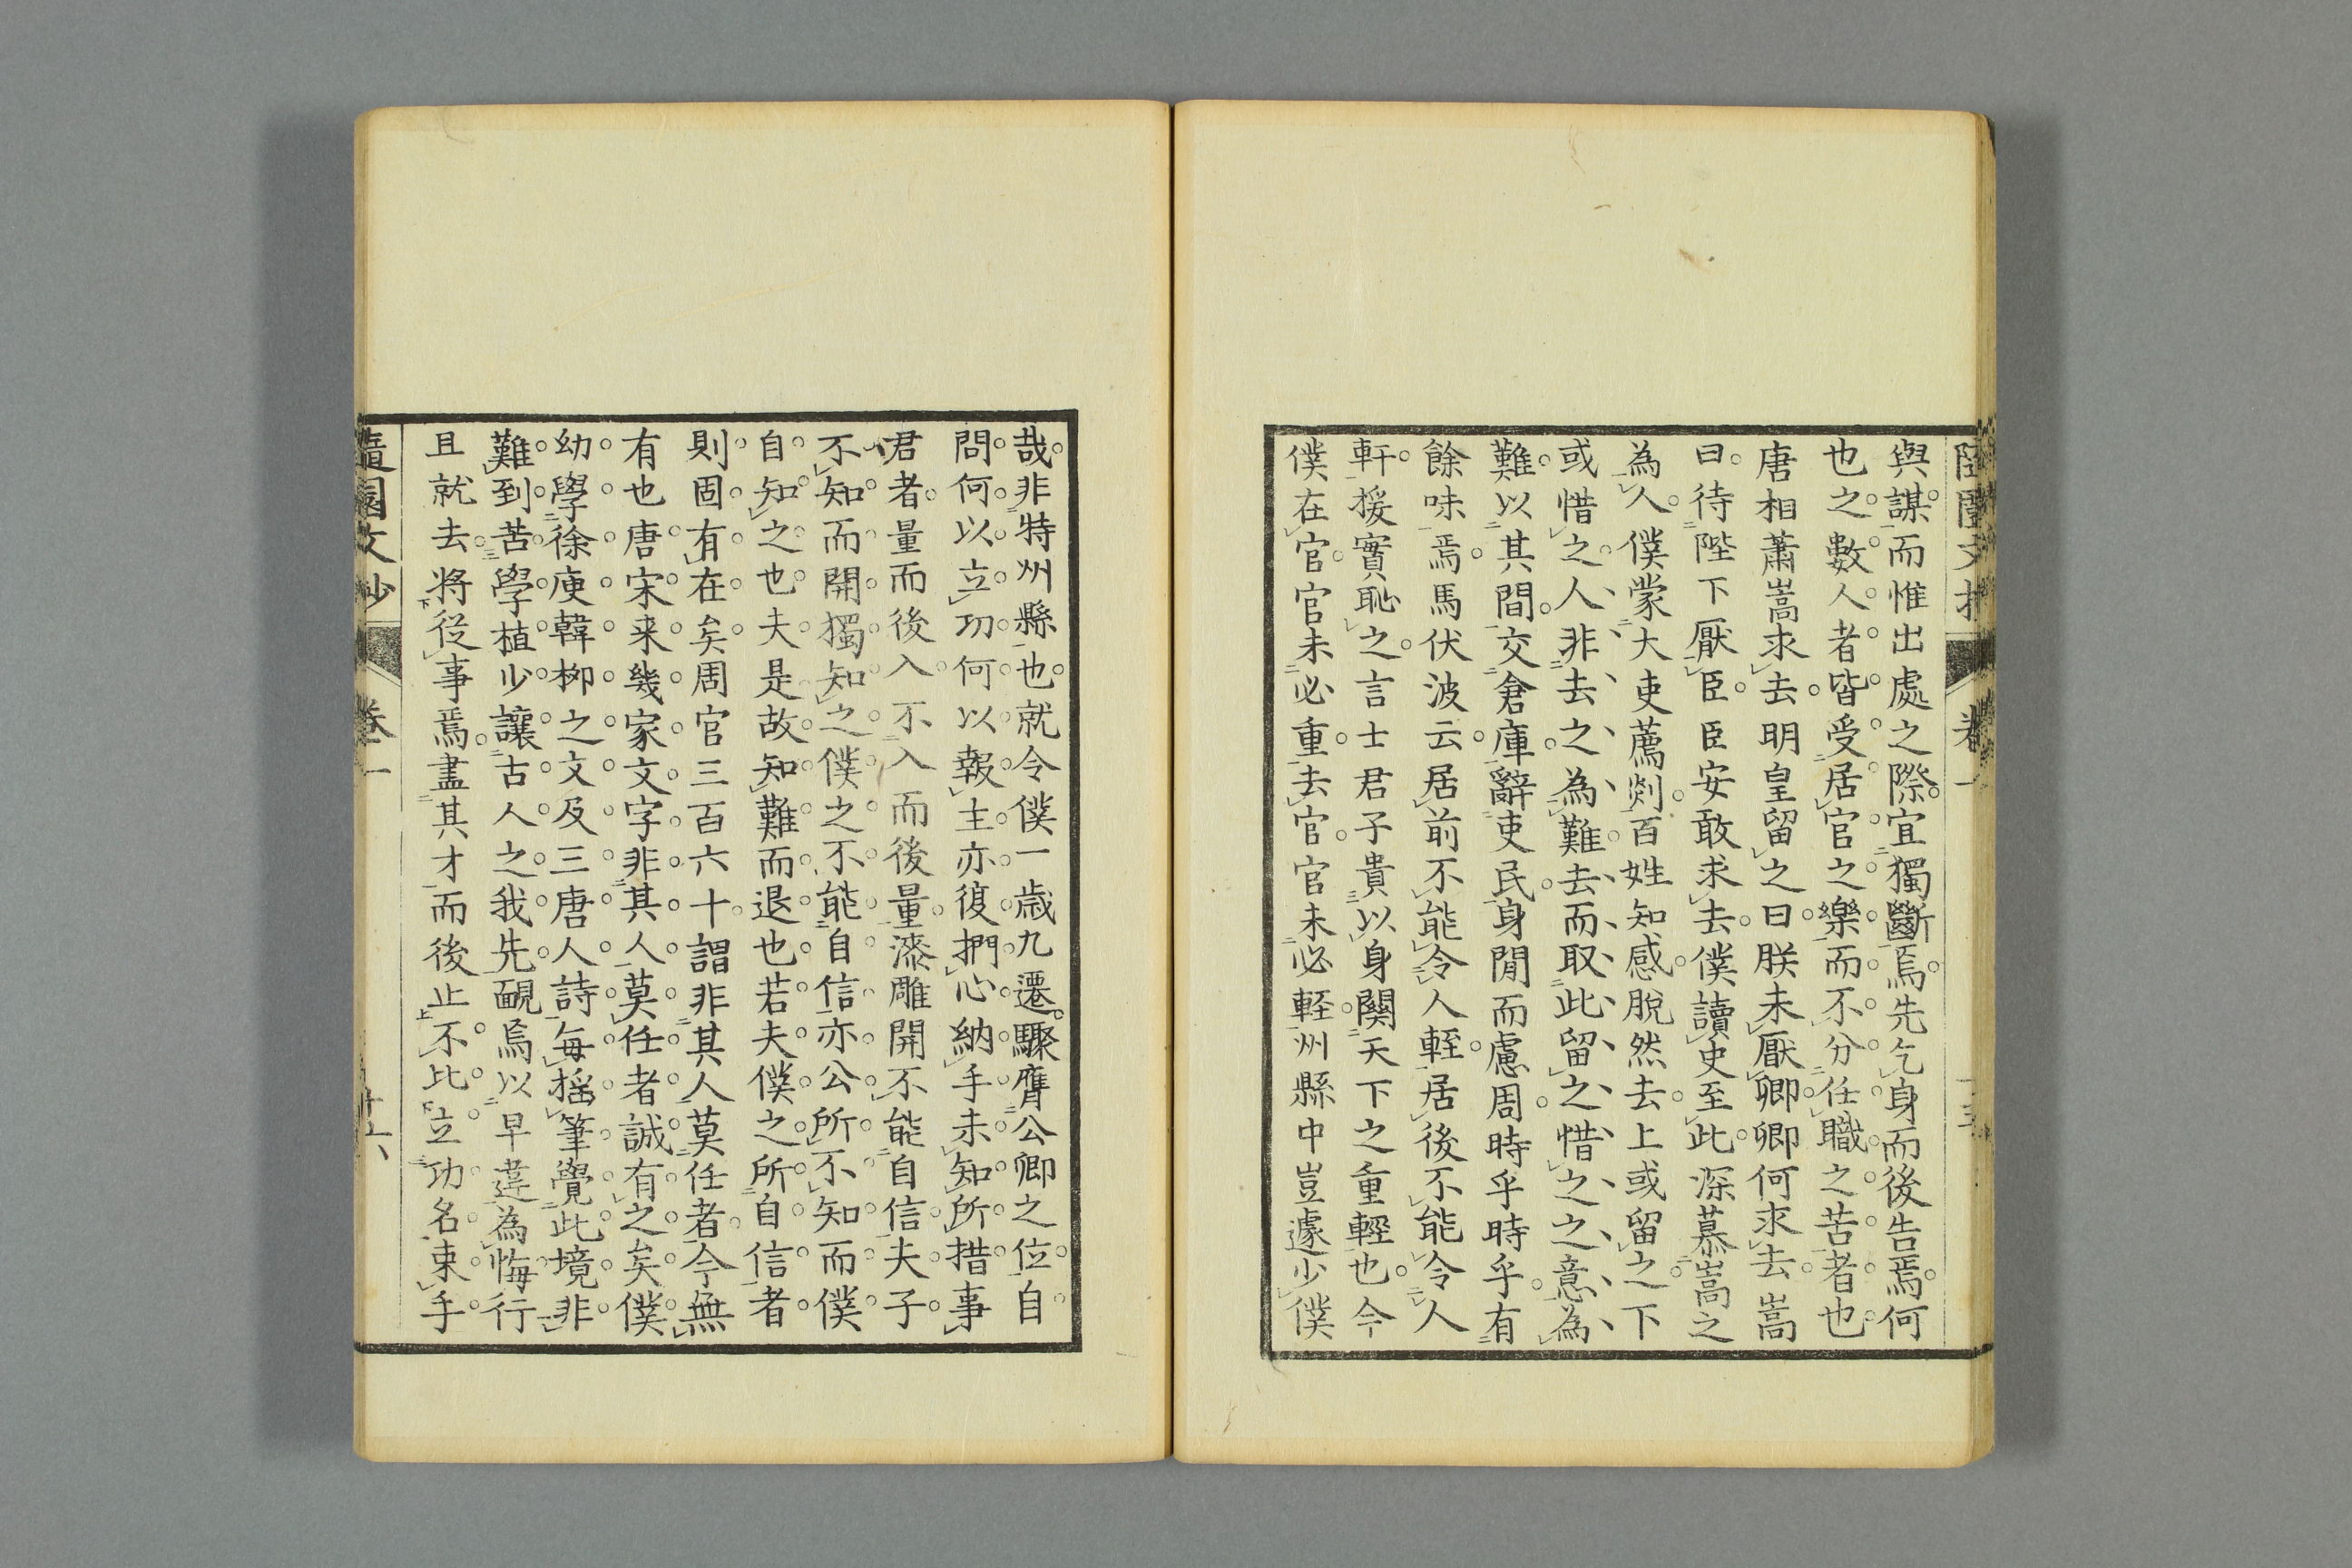 與謀而惟出處之際宜獨斷焉先乞身而後告焉何
也之數人者皆受居官之樂而不分任職之苦者也
唐相蕭嵩求去明皇留之曰朕未厭卿卿何求去嵩
曰待陛下厭臣臣安敢求去僕讀史至此深慕嵩之
為人僕蒙大吏薦剡百姓知感脫然去上或留之下
或惜之人非去之為難去而取此留之惜之之意為
難以其間交倉庫辭吏民身閒而慮周時乎時乎有
餘味焉馬伏波云居前不能令人輊居後不能令人
軒援實恥之言士君子貴以身關天下之重輕也今
僕在官官未必重去官官未必輕州縣中豈遽少僕
哉非特州縣也就令僕一歲九遷驟膺公卿之位自
問何以立功何以報主亦復捫心納手未知所措事
君者量而後入不入而後量漆雕開不能自信夫子
不知而開獨知之僕之不能自信亦公所不知而僕
自知之也夫是故知難而退也若夫僕之所自信者
則固有在矣周官三百六十謂非其人莫任者今無
有也唐宋来幾家文字非其人莫任者誠有之矣僕
幼學徐庾韓柳之文及三唐人詩每搖筆覺此境非
難到苦學植少讓古人之我先靦焉以早違為悔行
且就去将從事焉盡其才而後止不比立功名束手
隨園文抄 卷一 十六